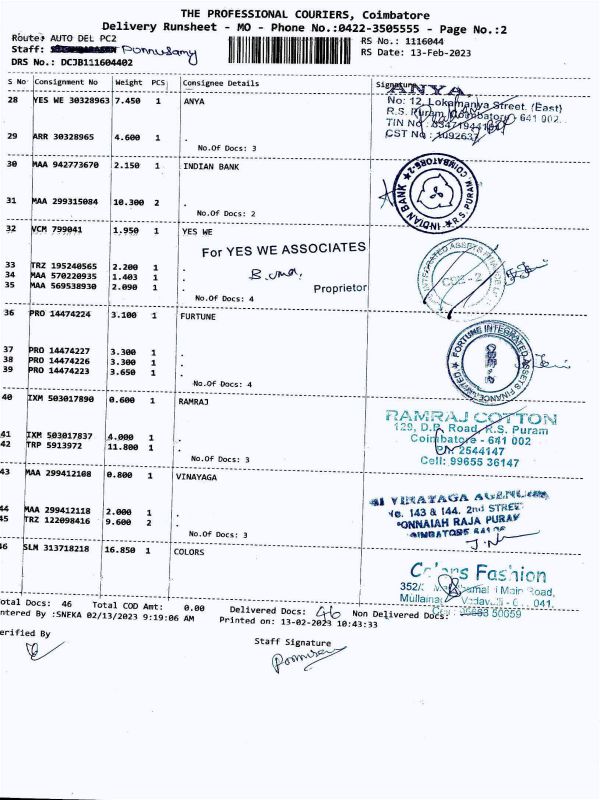 THE PROFESSIONAL COURIERS, Coimbatore
Delivery Runsheet - MO - Phone No.:0422-3505555 - Page No.:2
Route: AUTO DEL PC2
RS No.: 1116044
Staff: Ponnusamy
RS Date: 13-Feb-2023
DRS No.: DCJB111604402
S No Consignment No Weight PCS Consignee Details Signature
28 YES WE 30328963 7.450 1 ANYA
ANYA.
No: 12, Lokamanya Street, (East)
R.S. Puram, Coimbatore - 641 002.
TIN No :
CST No : 1092637
29 ARR 30328965 4.600 1 .
No.Of Docs: 3
30 MAA 942773670 2.150 1 INDIAN BANK
INDIAN BANK ★ R.S. PURAM COIMBATORE-2 ★
31 MAA 299315084 10.300 2 .
No.Of Docs: 2
32 VCM 799041 1.950 1 YES WE
For YES WE ASSOCIATES
B. uma
Proprietor
INTEGRATED ASSETS FINANCE
CBE - 2
33 TRZ 195240565 2.200 1 .
34 MAA 570220935 1.403 1 .
35 MAA 569538930 2.090 1 .
No.Of Docs: 4
36 PRO 14474224 3.100 1 FURTUNE
FORTUNE INTEGRATED ASSETS FINANCE LIMITED ★
37 PRO 14474227 3.300 1 .
38 PRO 14474226 3.300 1 .
39 PRO 14474223 3.650 1 .
No.Of Docs: 4
40 IXM 503017890 0.600 1 RAMRAJ
RAMRAJ COTTON
129, D.B. Road, R.S. Puram
Coimbatore - 641 002
2544147
Cell: 99655 36147
41 IXM 503017837 4.000 1 .
42 TRP 5913972 11.800 1 .
No.Of Docs: 3
43 MAA 299412108 0.800 1 VINAYAGA
VINAYAGA AGENCIES
No. 143 & 144. 2nd STREET
PONNAIAH RAJA PURAM
COIMBATORE
44 MAA 299412118 2.000 1 .
45 TRZ 122098416 9.600 2 .
No.Of Docs: 3
46 SLM 313718218 16.850 1 COLORS
Colors Fashion
352/ Main Road,
041.
50059
Total Docs: 46 Total COD Amt: 0.00 Delivered Docs: 46 Non Delivered Docs:
Entered By :SNEKA 02/13/2023 9:19:06 AM Printed on: 13-02-2023 10:43:33
Verified By
Staff Signature
Ponnusamy